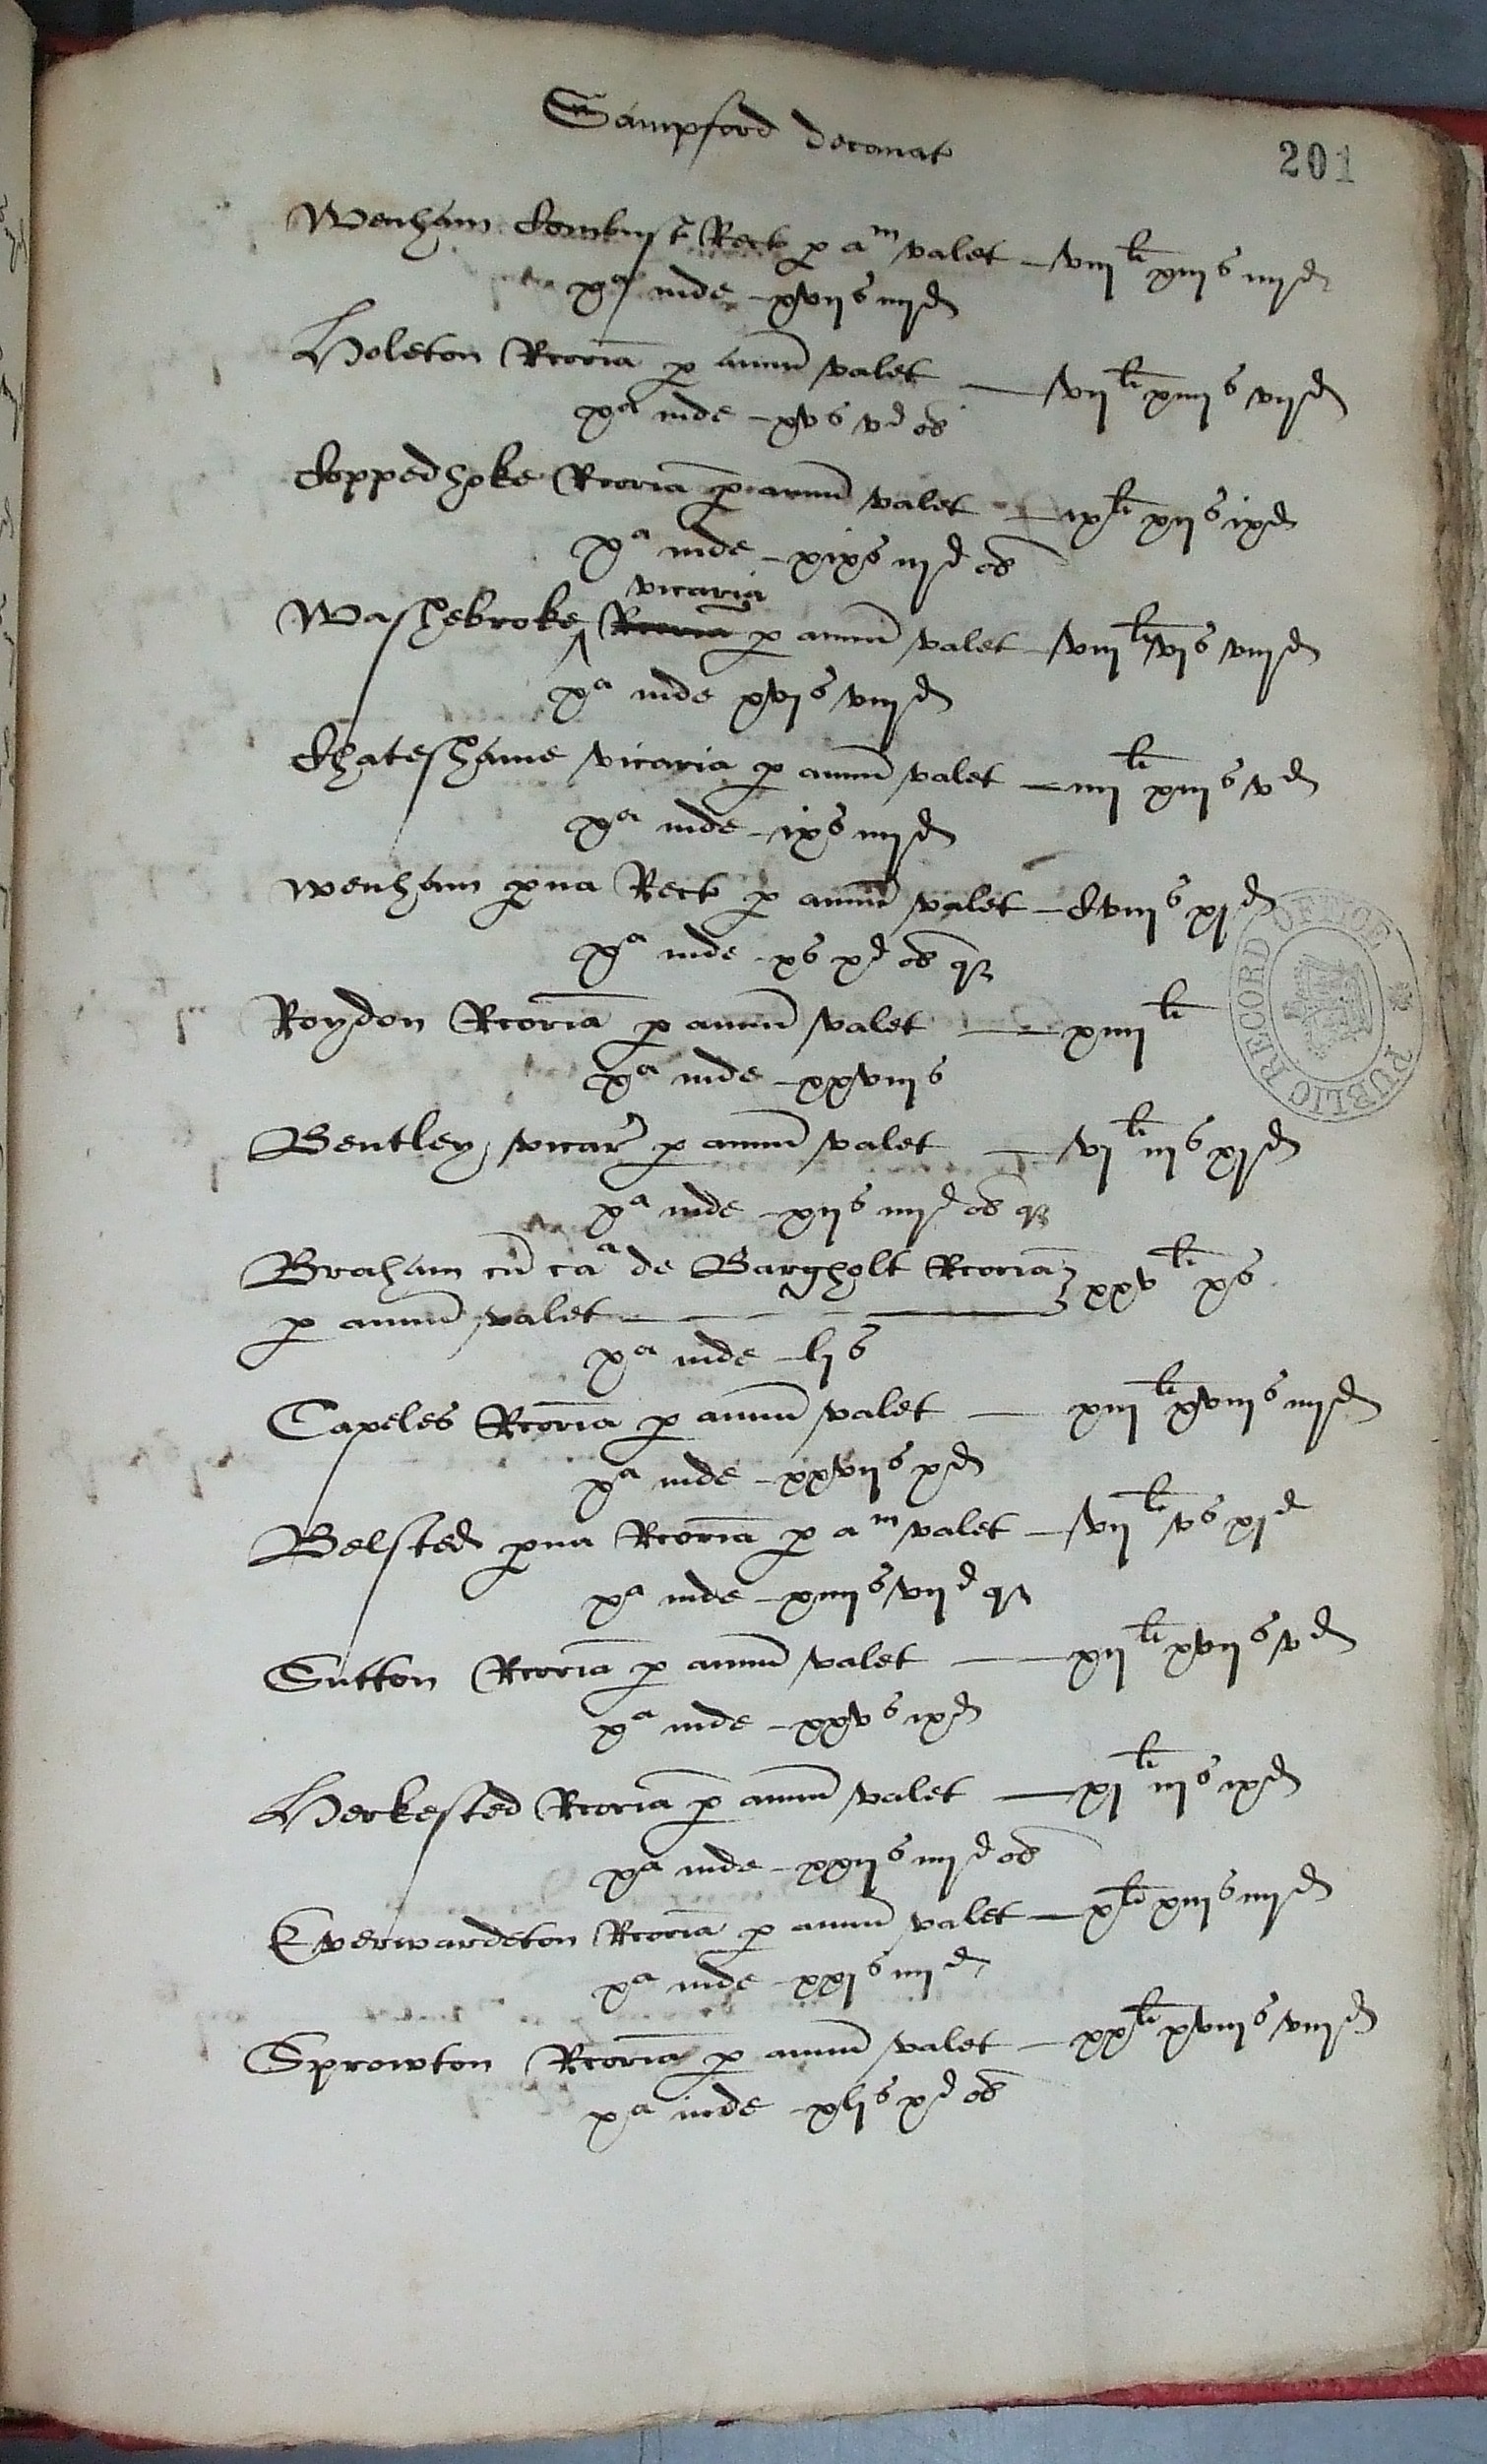 Sampford decanat
201
Wenham Combust Rect p am valet – viijli xiijs iiijd
xa inde – xvijs iiijd
Holeton Rcoria p annu valet — vijli xiiijs vijd
xa inde – xvs vd ob
Coppedhoke Rcoria p annu valet – ixli xijs ixd
xa inde – xixs iijd ob
vicaria
Washebroke ^ Rcoria p annu valet – viijli vjs viijd
xa inde xvjs viijd
Chateshame vicaria p annu valet – iiijli xiijs vd
xa inde – ixs iiijd
Wenham pua Rect p annu valet – Cviijs xjd
xa inde – xs xd ob qr
Roydon Rcoria p annu valet — xiiijli
xa inde – xxviijs
Bentley vicar p annu valet — vjli iijs xjd
xa inde – xijs iiijd ob qr
Braham cu ca a de Bargholt Rcoria
p annu valet — xxvli xs
xa inde – ljs
Capeles Rcoria p annu valet — xiijli xviijs iiijd
xa inde – xxvijs xd
Belsted pua Rcoria p am valet – vijli vs xjd
xa inde – xiiijs vijd qr
Sutton Rcoria p annu valet — xijli xvijs vd
xa inde – xxvs ixd
Herkested Rcoria p annu valet — xjli iijs ixd
xa inde – xxijs iiijd ob
Everwardeton Rcoria p annu valet – xli xiijs iiijd
xa inde – xxjs iiijd
Sprowton Rcoria p annu valet – xxli xviijs viijd
xa inde – xljs xd ob
PUBLIC RECORD OFFICE